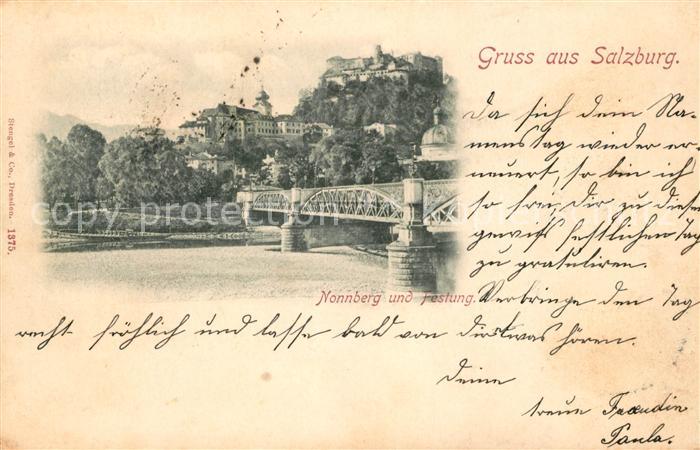 Gruss aus Salzburg.
Da sich dein Na-
menstag wieder er-
neuert, so bin ich
so frei, dir zu diesem
gewiß festlichen Tag
zu gratuliren.
Nonnberg und Festung.
Verbringe den Tag
recht fröhlich und lasse bald von dir etwas hören.
Deine
treue Freundin
Paula.
Stengel & Co., Dresden. 1375.
copyright protection